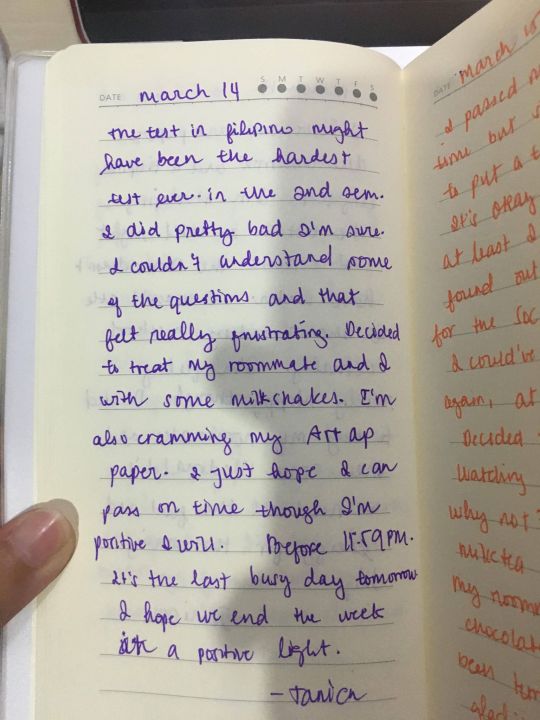 DATE: march 14 S M T W T F S
the test in filipino might
have been the hardest
test ever. in the 2nd sem.
I did pretty bad I'm sure.
I couldn't understand some
of the questions and that
felt really frustrating. Decided
to treat my roommate and I
with some milkshakes. I'm
also cramming my Art ap
paper. I just hope I can
pass on time though I'm
positive I will. Before 11:59PM.
It's the last busy day tomorrow
I hope we end the week
in a positive light.
DATE: march 15
I passed
time but
to put a t
It's okay
at least I
found out
for the soc
I could've
again, at
Decided
watching
why not
milktea
my roomm
chocolat
been